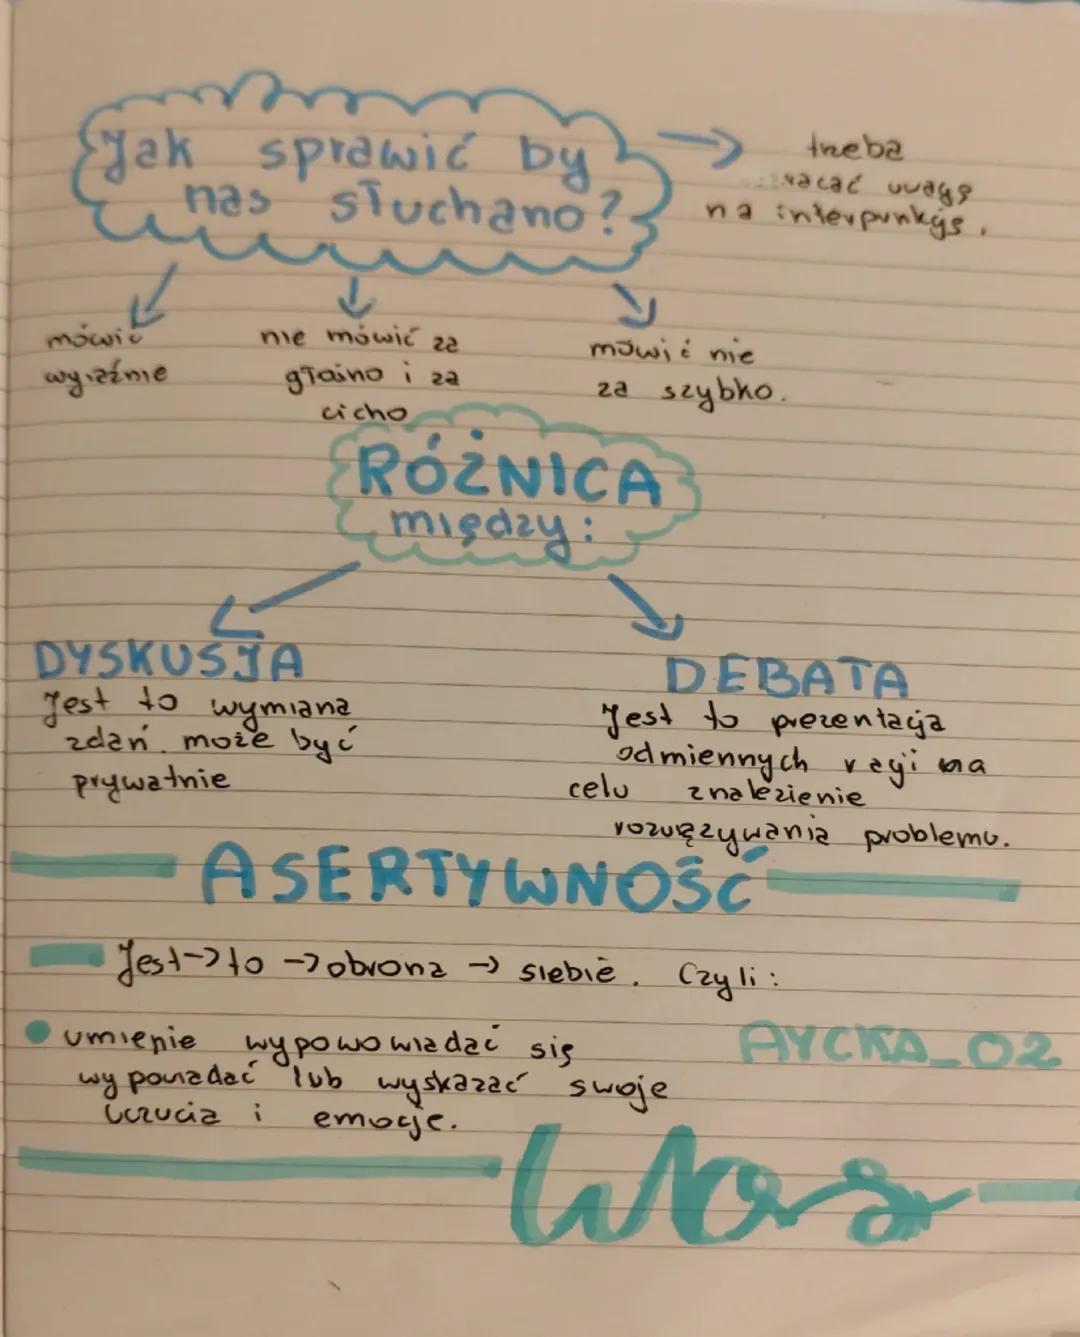 Jak sprawić by
nas słuchano?
trzeba
uwagę
na interpunkcję.
mówić
wyraźnie
nie mówić za
głośno i za
cicho
mówić nie
za szybko.
RÓŻNICA
między:
DYSKUSJA
Jest to wymiana
zdań. może być
prywatnie
DEBATA
Jest to prezentacja
odmiennych racji ma
celu znalezienie
rozwiązywania problemu.
ASERTYWNOŚĆ
Jest->to->obrona->siebie. Czyli:
umienie wypowowiadać się
wypowiadać lub wyskazać swoje
uczucia i emocje.
AYCKA_02
Wos